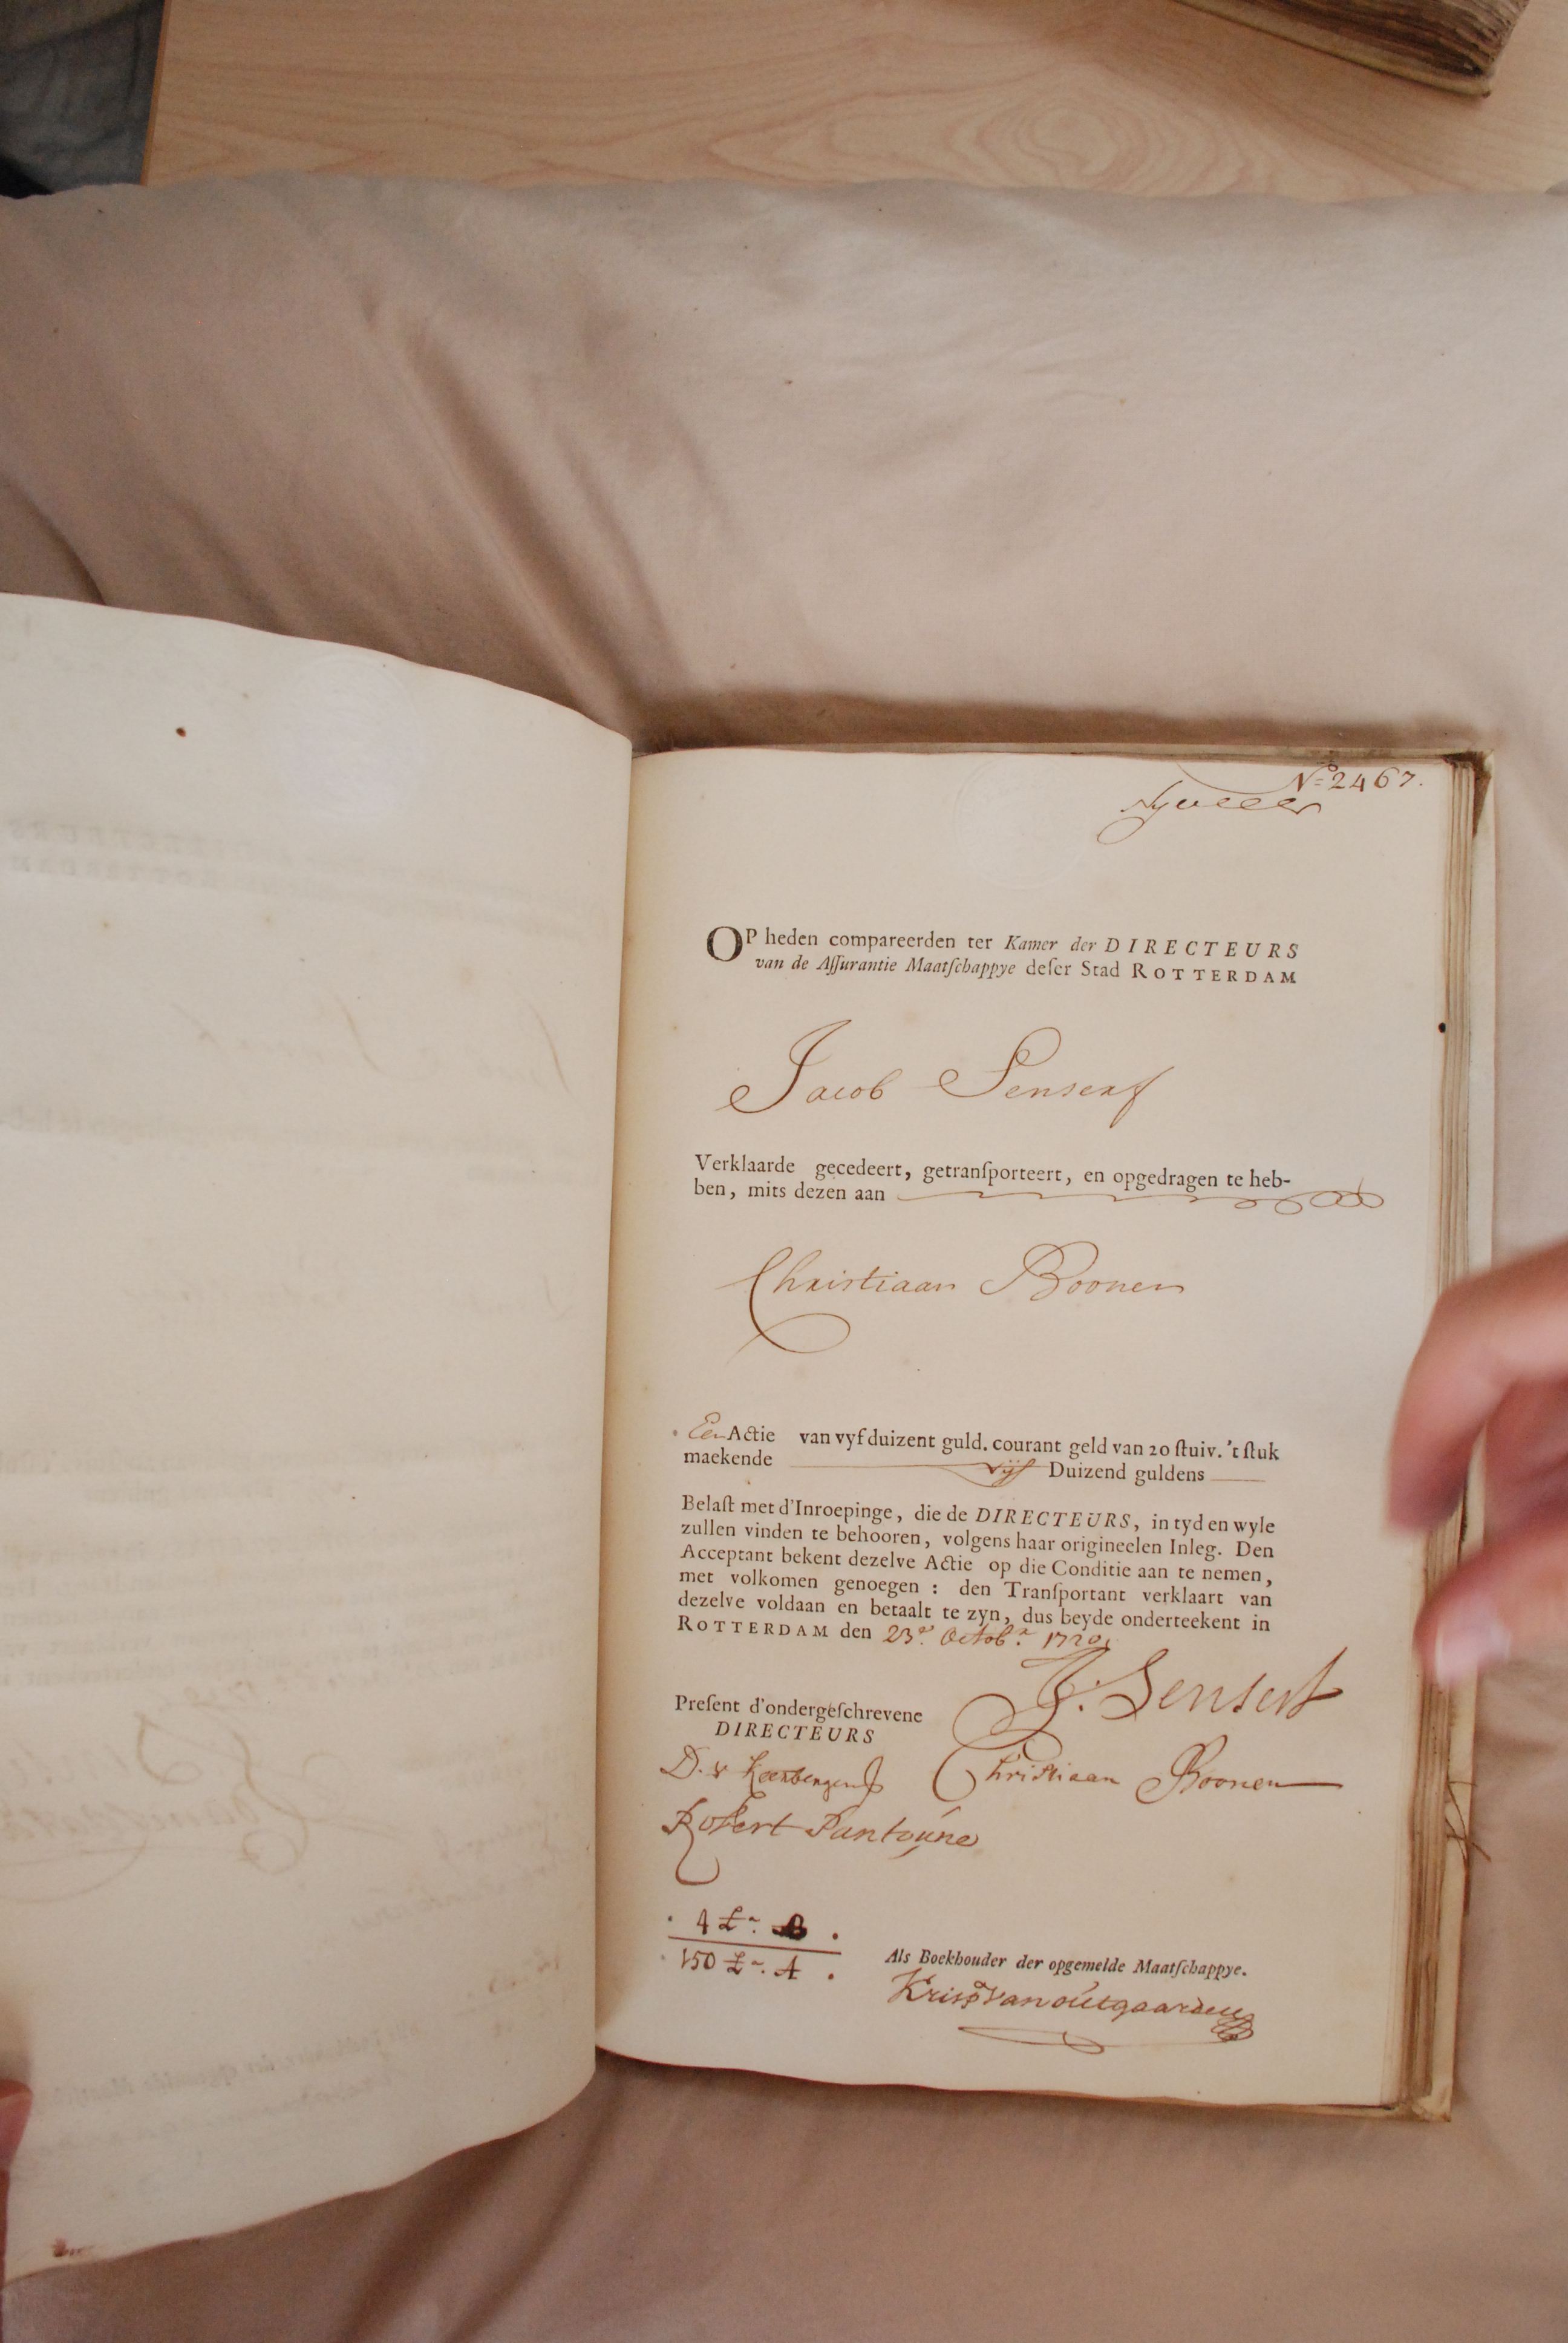 Nº 2467.
OP heden compareerden ter Kamer der DIRECTEURS
van de Aſſurantie Maatſchappye deſer Stad ROTTERDAM
Jacob Senserf
Verklaarde gecedeert, getranſporteert, en opgedragen te heb-
ben, mits dezen aan
Christiaan Boonen
Een Actie van vyf duizent guld. courant geld van 20 ſtuiv. 't ſtuk
maekende vijf Duizend guldens
Belaſt met d'Inroepinge, die de DIRECTEURS, in tyd en wyle
zullen vinden te behooren, volgens haar origineelen Inleg. Den
Acceptant bekent dezelve Actie op die Conditie aan te nemen,
met volkomen genoegen : den Tranſportant verklaart van
dezelve voldaan en betaalt te zyn, dus beyde onderteekent in
ROTTERDAM den 23e. Octobr. 1720.
J. Senserf
Preſent d'ondergeſchrevene
DIRECTEURS
D. v Keerbergen Christiaan Boonen
Robert Pantoúne
4 La. B.
150 La. A.
Als Boekhouder der opgemelde Maatſchappye.
Krisp van oútgaarden